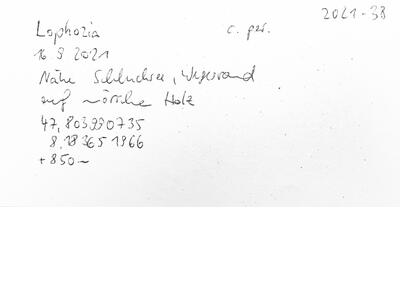 2021-38
Lophozia c. per.
16 9 2021
Nähe Schluchsee, Wegesrand
auf morsche Holz
47,803990735
8,183651966
+850m